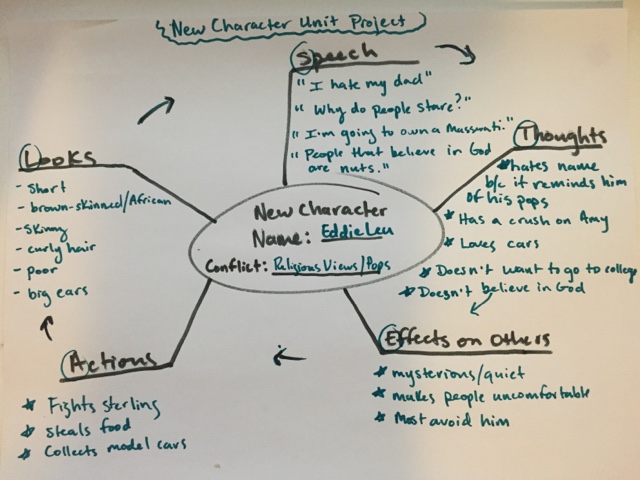 New Character Unit Project
Speech
"I hate my dad"
"Why do people stare?"
"I'm going to own a Masswati."
"People that believe in God
are nuts."
Thoughts
* hates name
b/c it reminds him
of his pops
* Has a crush on Amy
* Loves cars
* Doesn't want to go to college
* Doesn't believe in God
Effects on Others
* mysterious/quiet
* makes people uncomfortable
* Most avoid him
Actions
* Fights Sterling
* Steals food
* Collects model cars
Looks
- Short
- brown-skinned/African
- Skinny
- curly hair
- poor
- big ears
New Character
Name: Eddie Leu
Conflict: Religious Views/Pops